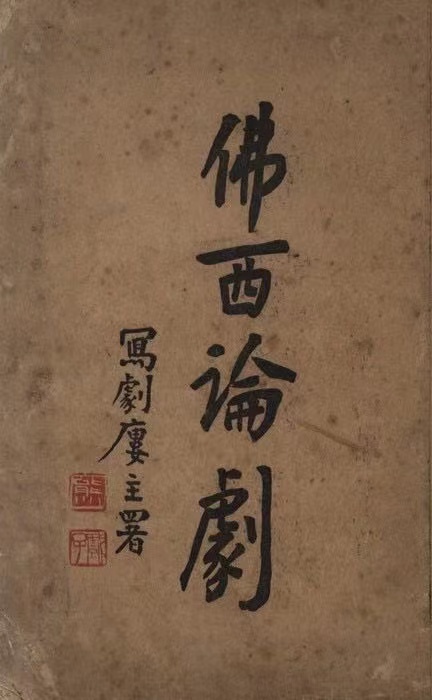 佛西論劇
寫劇廔主署